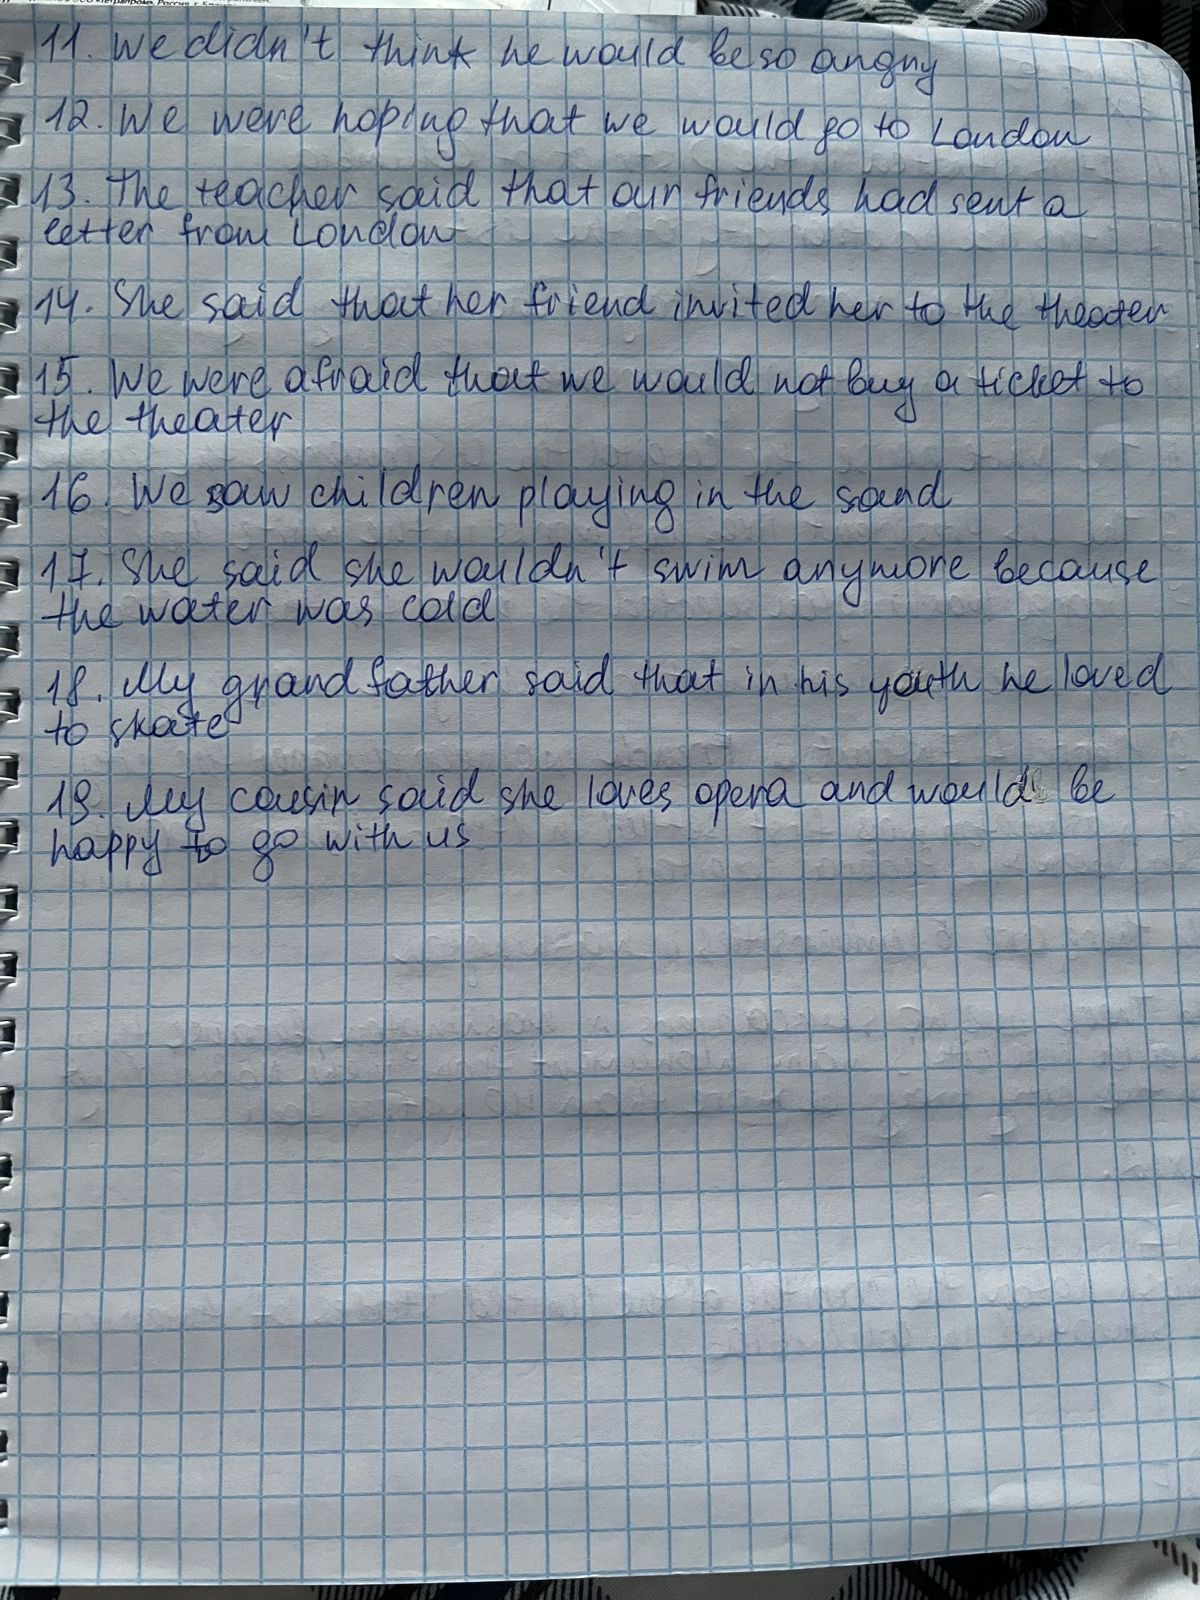 11. We didn't think he would be so angry
12. We were hoping that we would go to London
13. The teacher said that our friends had sent a
letter from London
14. She said that her friend invited her to the theater
15. We were afraid that we would not buy a ticket to
the theater
16. We saw children playing in the sand
17. She said she wouldn't swim anymore because
the water was cold
18. My grandfather said that in his youth he loved
to skate
19. My cousin said she loves opera and would be
happy to go with us